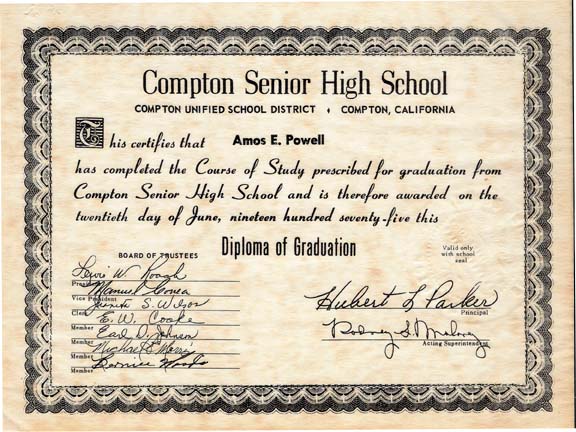 Compton Senior High School
COMPTON UNIFIED SCHOOL DISTRICT • COMPTON, CALIFORNIA
This certifies that Amos E. Powell
has completed the Course of Study prescribed for graduation from
Compton Senior High School and is therefore awarded on the
twentieth day of June, nineteen hundred seventy-five this
Diploma of Graduation
Valid only
with school
seal
BOARD OF TRUSTEES
President
Manuel Correa
Vice President
Clerk
E. W. Cooke
Member
Earl D. Johnson
Member
Member
Member
Hubert L Parker
Principal
Rodney S. Mahony
Acting Superintendent